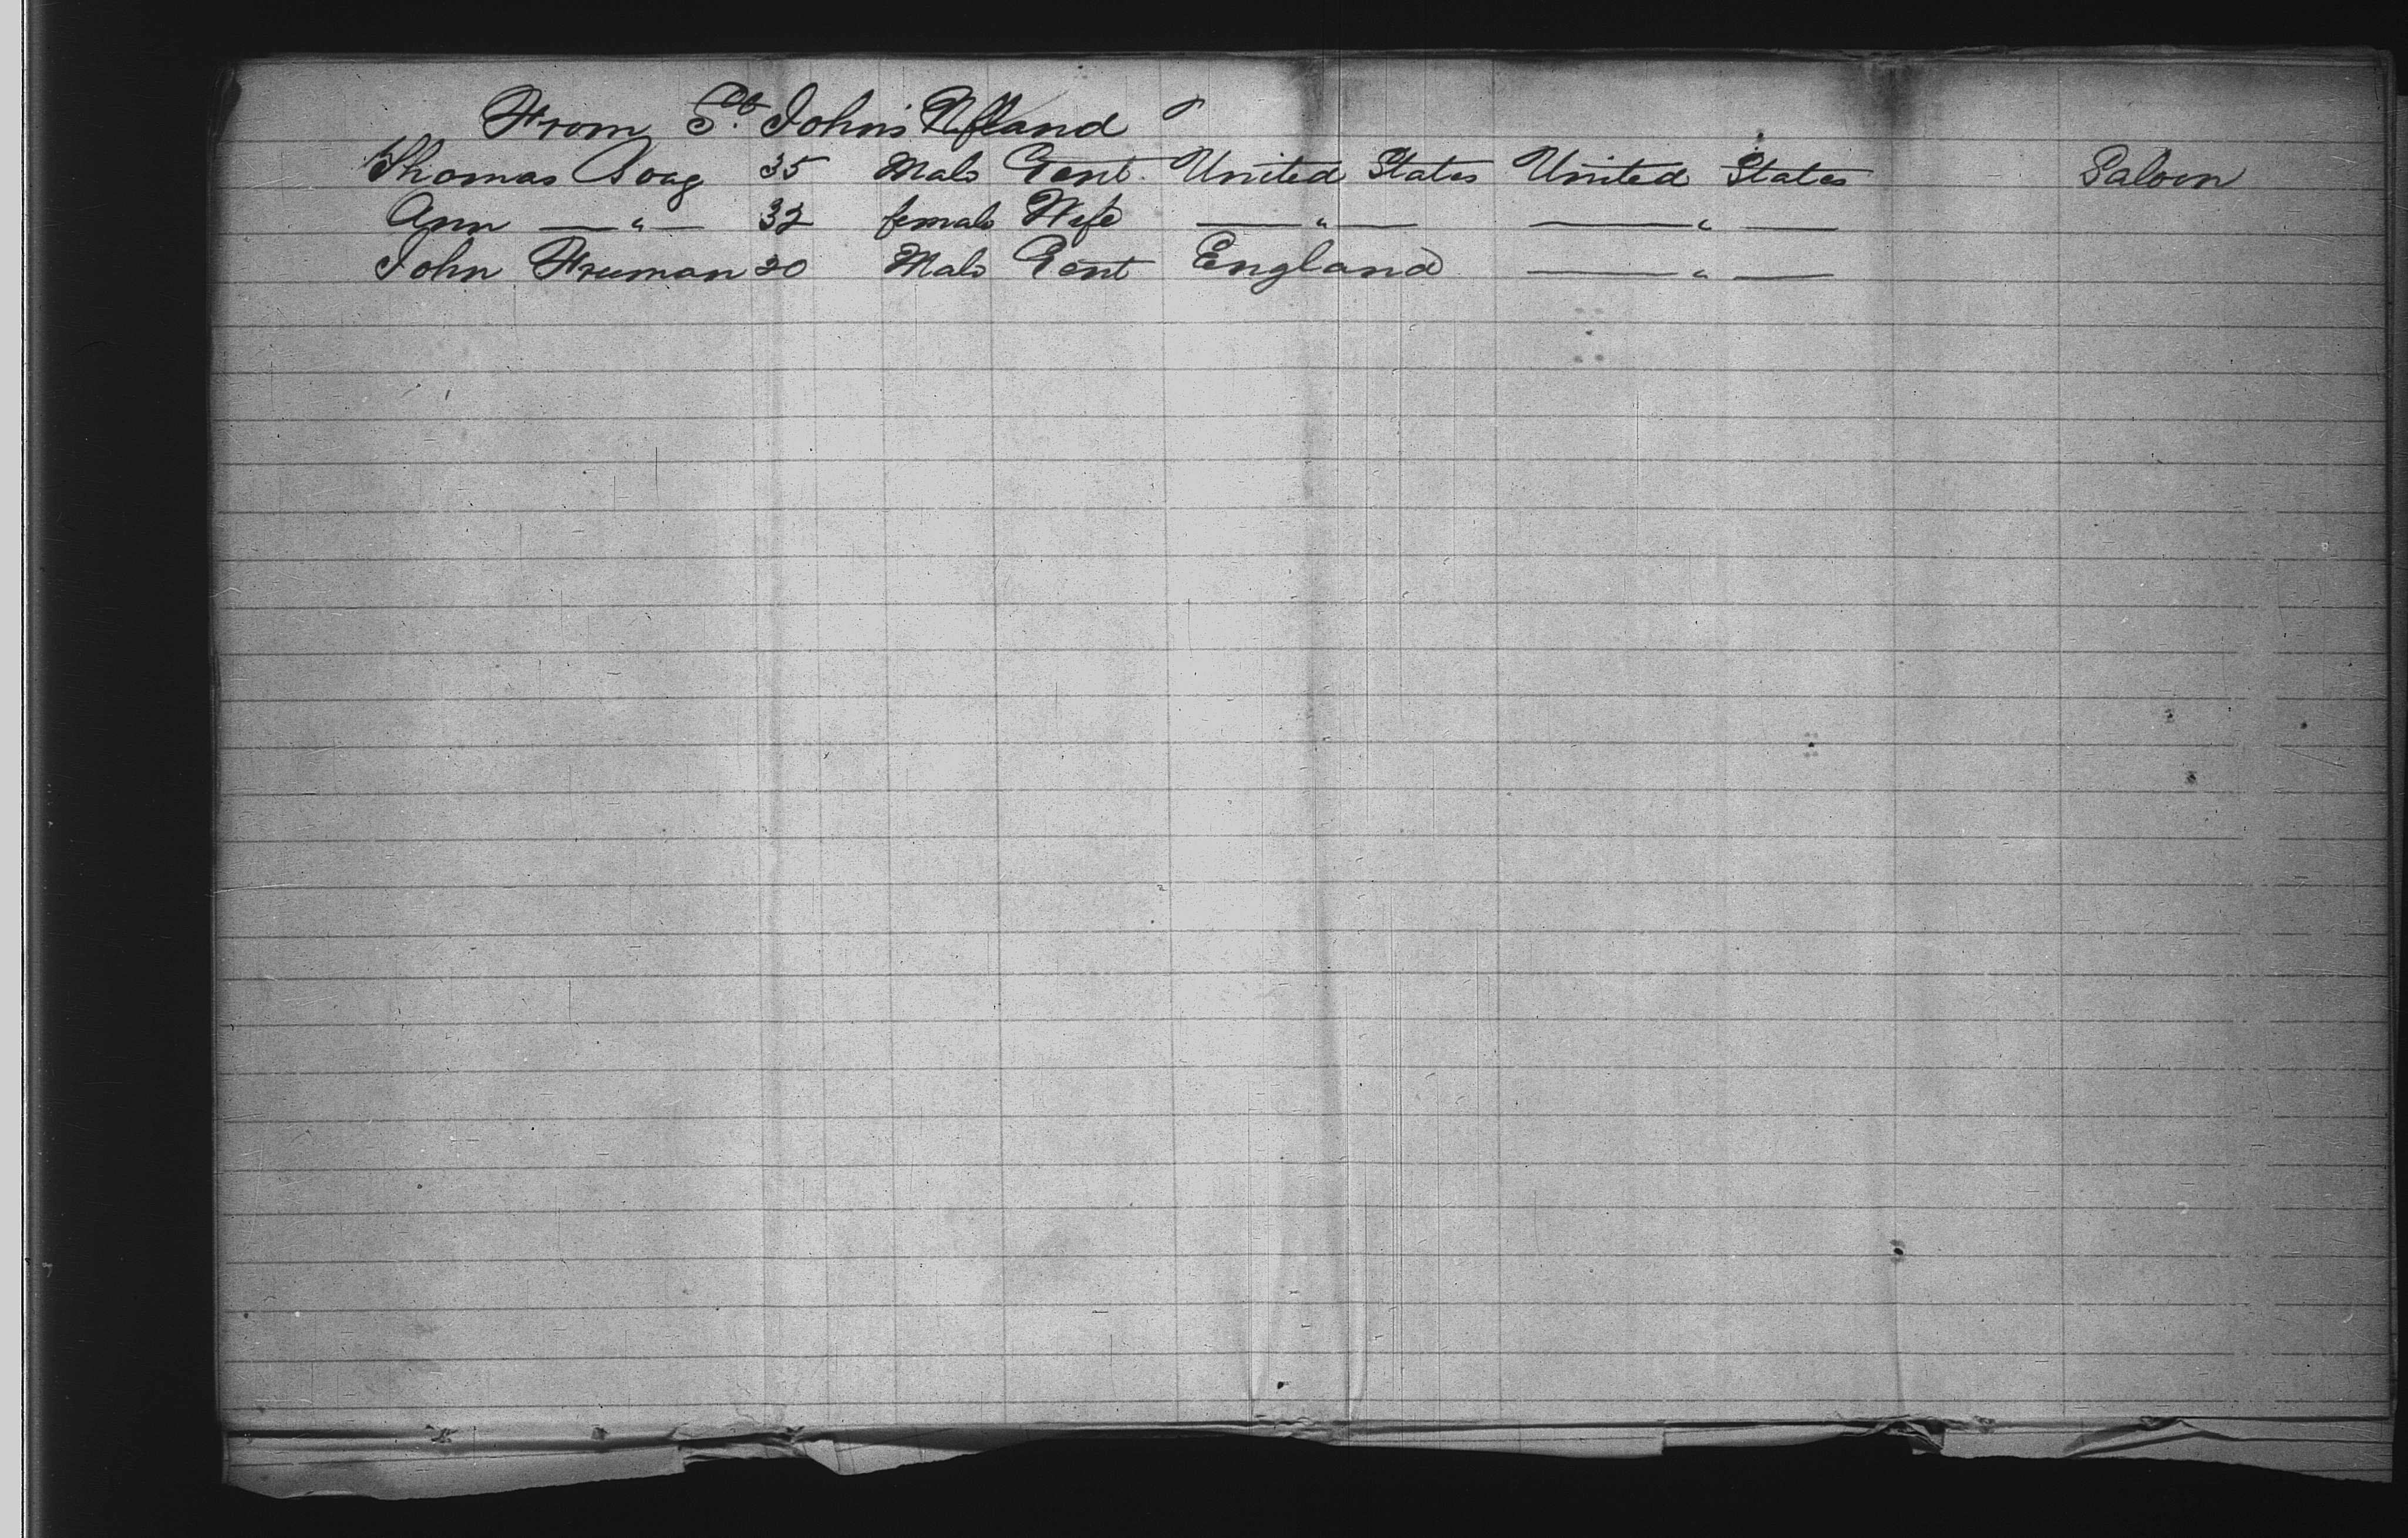 From St. John's Nfland
Thomas Boag 35 Male Gent. United States United States Saloon
Ann — " — 32 female Wife — " — — " —
John Freeman 20 Male Gent England — " —